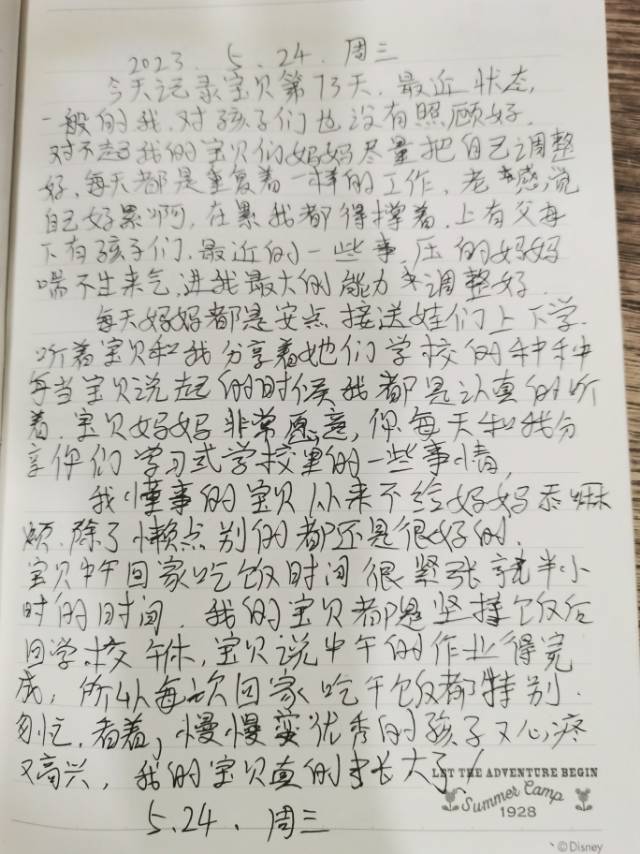 2023. 5. 24. 周三
今天记录宝贝第73天. 最近状态,
一般的我. 对孩子们也没有照顾好.
对不起我的宝贝们妈妈尽量把自己调整
好. 每天都是重复着一样的工作. 老感觉
自己好累啊, 在累我都得撑着. 上有父母
下有孩子们. 最近的一些事. 压的妈妈
喘不出来气. 进我最大的能力调整好.
每天妈妈都是安点接送娃们上下学.
听着宝贝和我分享着她们学校的种种
每当宝贝说起的时候我都是认真的听
着. 宝贝妈妈非常愿意, 你每天和我分
享你们学习或学校里的一些事情,
我懂事的宝贝从来不给妈妈添麻
烦. 除了懒点别的都还是很好的.
宝贝中午回家吃饭时间很紧张就半小
时的时间. 我的宝贝都是坚持饭后
回学校午休, 宝贝说中午的作业得完
成, 所以每次回家吃午饭都特别.
匆忙. 看着, 慢慢变优秀的孩子又心疼
又高兴, 我的宝贝真的长大了!
LET THE ADVENTURE BEGIN
Summer Camp
1928
5.24. 周三
©Disney